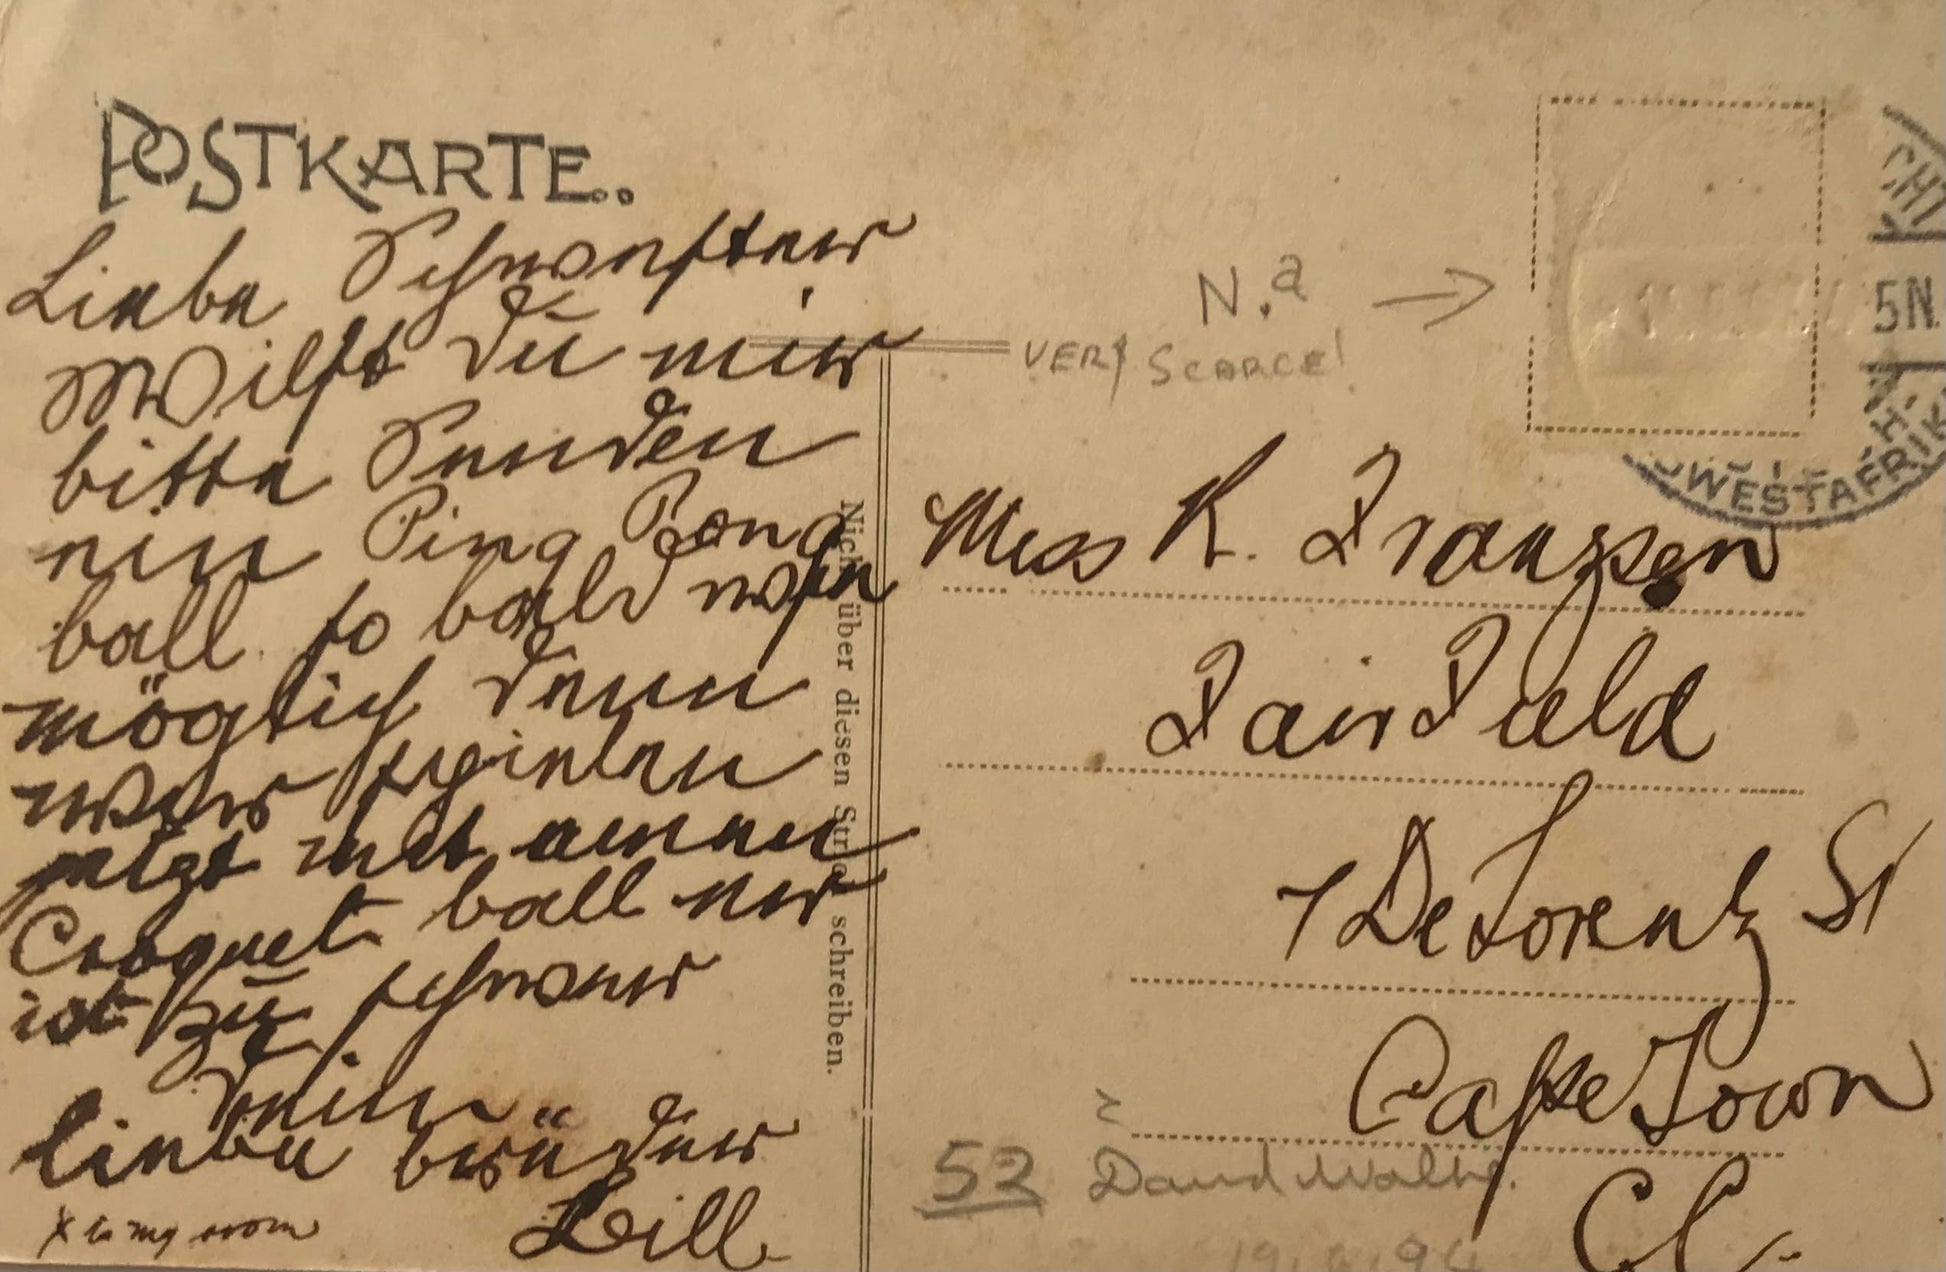 POSTKARTE.
Liebe Schwester
Willst du mir
bitte Senden
ein Ping Pong
ball so bald wie
möglich denn
wir spielen
jetzt mit einen
Croquet ball er
ist zu schwer
Dein
liebe brüder
Bill
x is my room
Nicht über diesen Strich schreiben.
N.a →
VERY SCARCE!
CHT
5N.
WESTAFRIK
Miss K. Franzsen
FairField
7 De Lorentz St
Cape Town
CC.
52 David